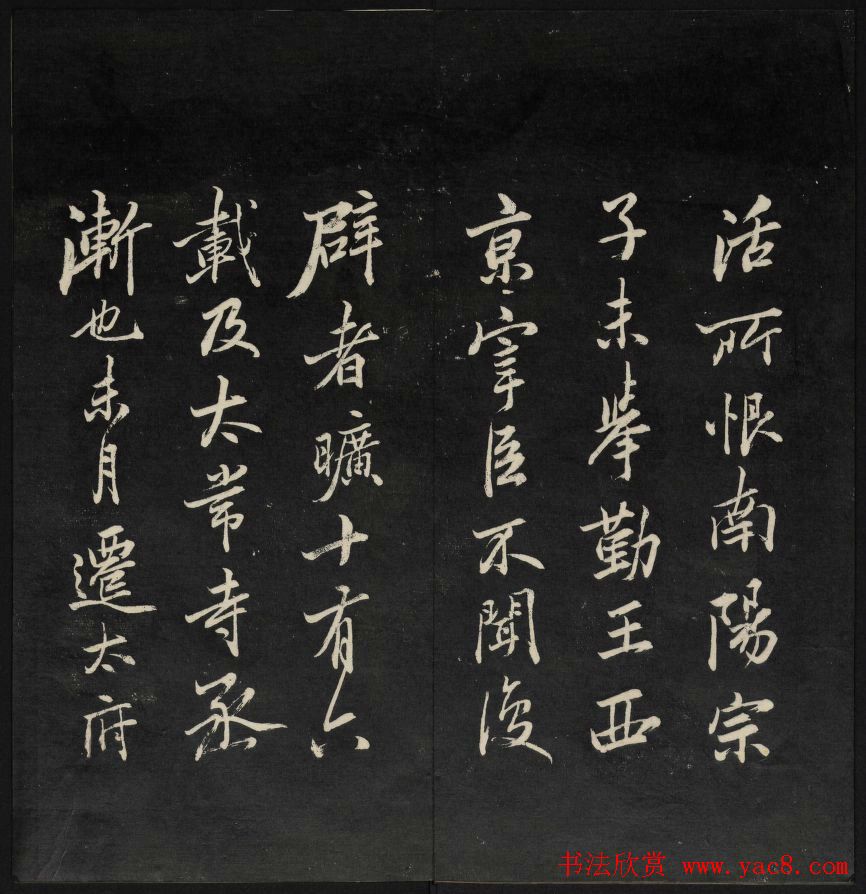 活所恨南陽宗
子未举勤王西
京宰臣不聞復
辟者曠十有六
載及太常寺丞
漸也未月遷太府
书法欣赏 www.yac8.com